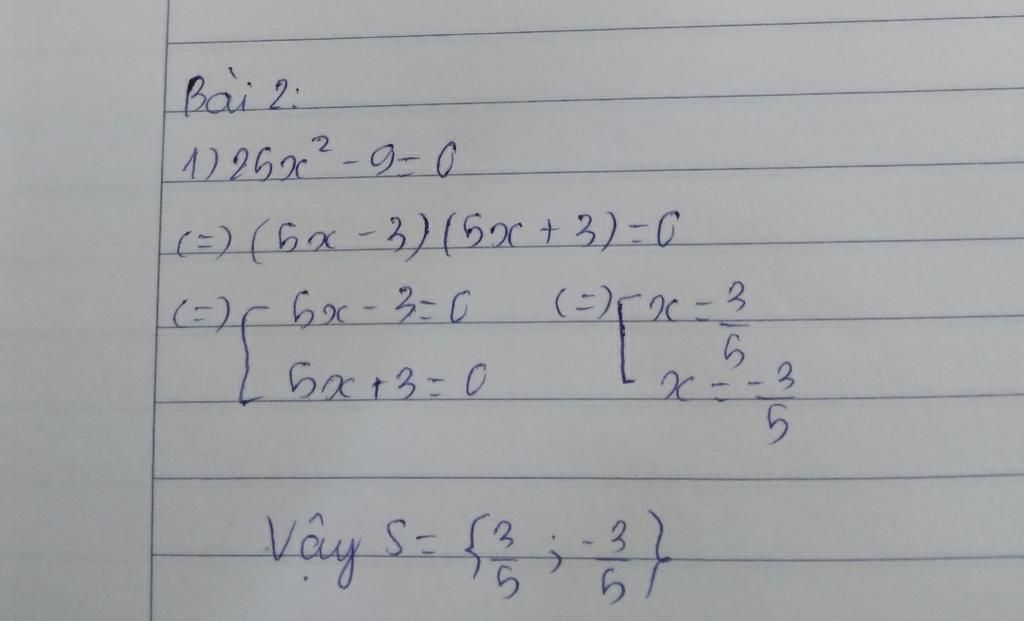 Bài 2:
1) 25x² - 9 = 0
(=) (5x - 3)(5x + 3) = 0
(=) [ 5x - 3 = 0 (=) [ x = 3/5
5x + 3 = 0 x = -3/5
Vậy S = {3/5 ; -3/5}